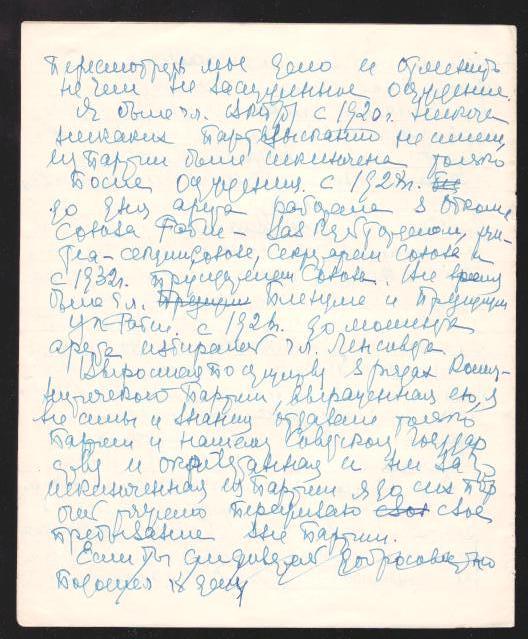 Пересмотреть мое дело и отменить
ни чем не заслуженное осуждение.
Я была чл. ВКП(б) с 1920г. никогда
никаких партвзысканий не имела,
из партии была исключена только
после осуждения. С 1928г.
до дня ареста работала в
Союза Рабис –
секретарем Союза и
с 1932г. председателем Союза. Все время
была чл. Пленума и Президиума
ЦК Рабис. С 192 г. до момента
ареста избиралась чл. Ленсовета.
Выросшая по существу в рядах Комму-
нистической Партии, выращенная ею, я
все силы и знания отдавала только
партии и нашему Советскому Государ
ству и оклеветанная и ни за что
исключенная из партии я до сих пор
очень тяжело переживаю свое
пребывание вне партии.
Если бы следователь добросовестно
подошел к делу